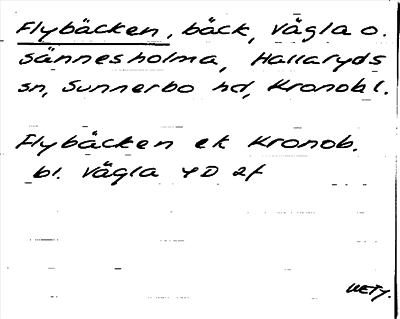 Flybäcken, bäck, Vägla o.
Sännesholma, Hallaryds
sn, Sunnerbo hd, Kronob l.
Flybäcken ek Kronob.
bl. Vägla 4D 2f